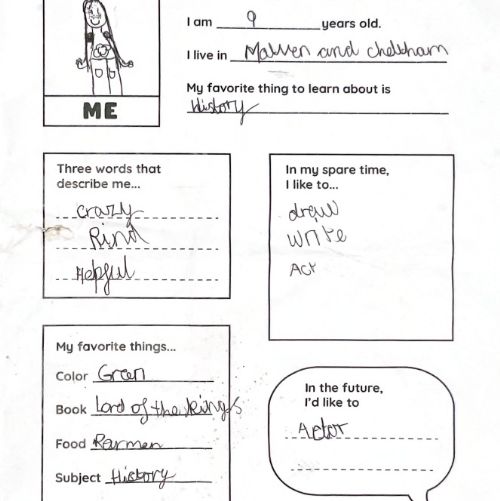 I am 9 years old.
I live in Malven and cheltham
My favorite thing to learn about is
History
ME
Three words that
describe me...
crazy
Kind
Helpful
In my spare time,
I like to...
draw
write
Act
My favorite things...
Color Green
Book Lord of the Rings
Food Rarmen
Subject History
In the future,
I'd like to
Actor